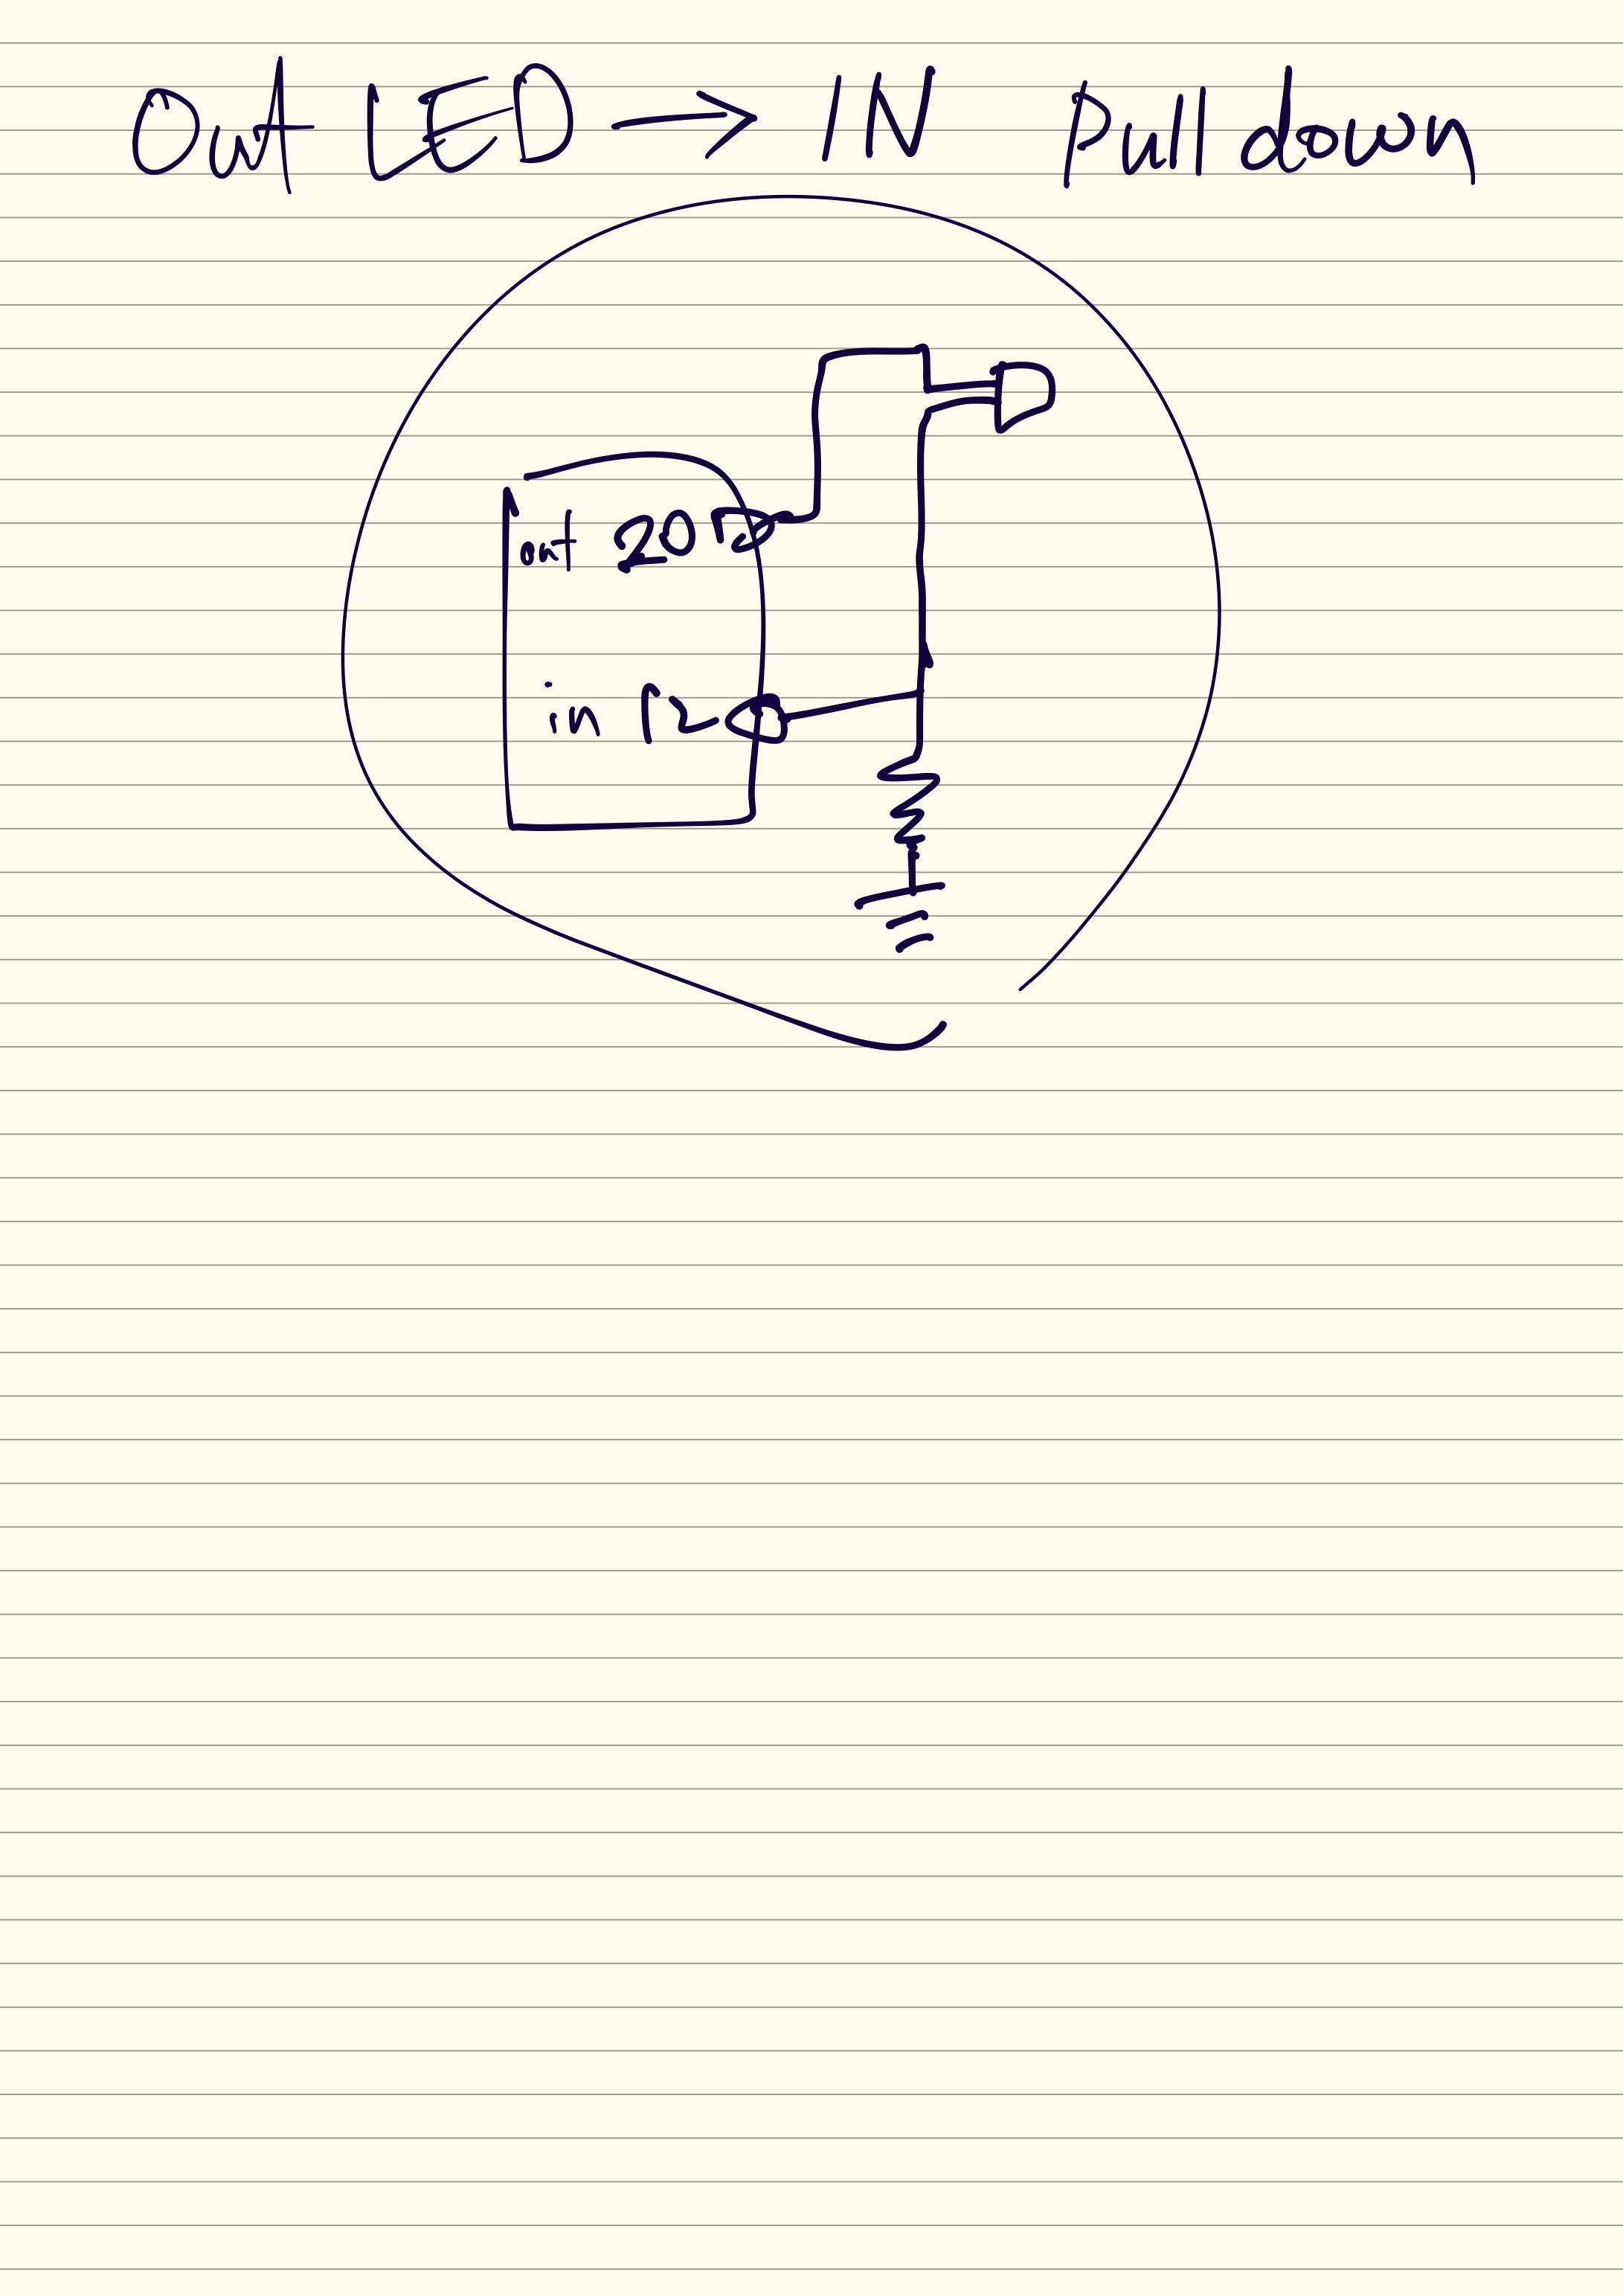 Out LED → IN Pull down
out 20
in 12